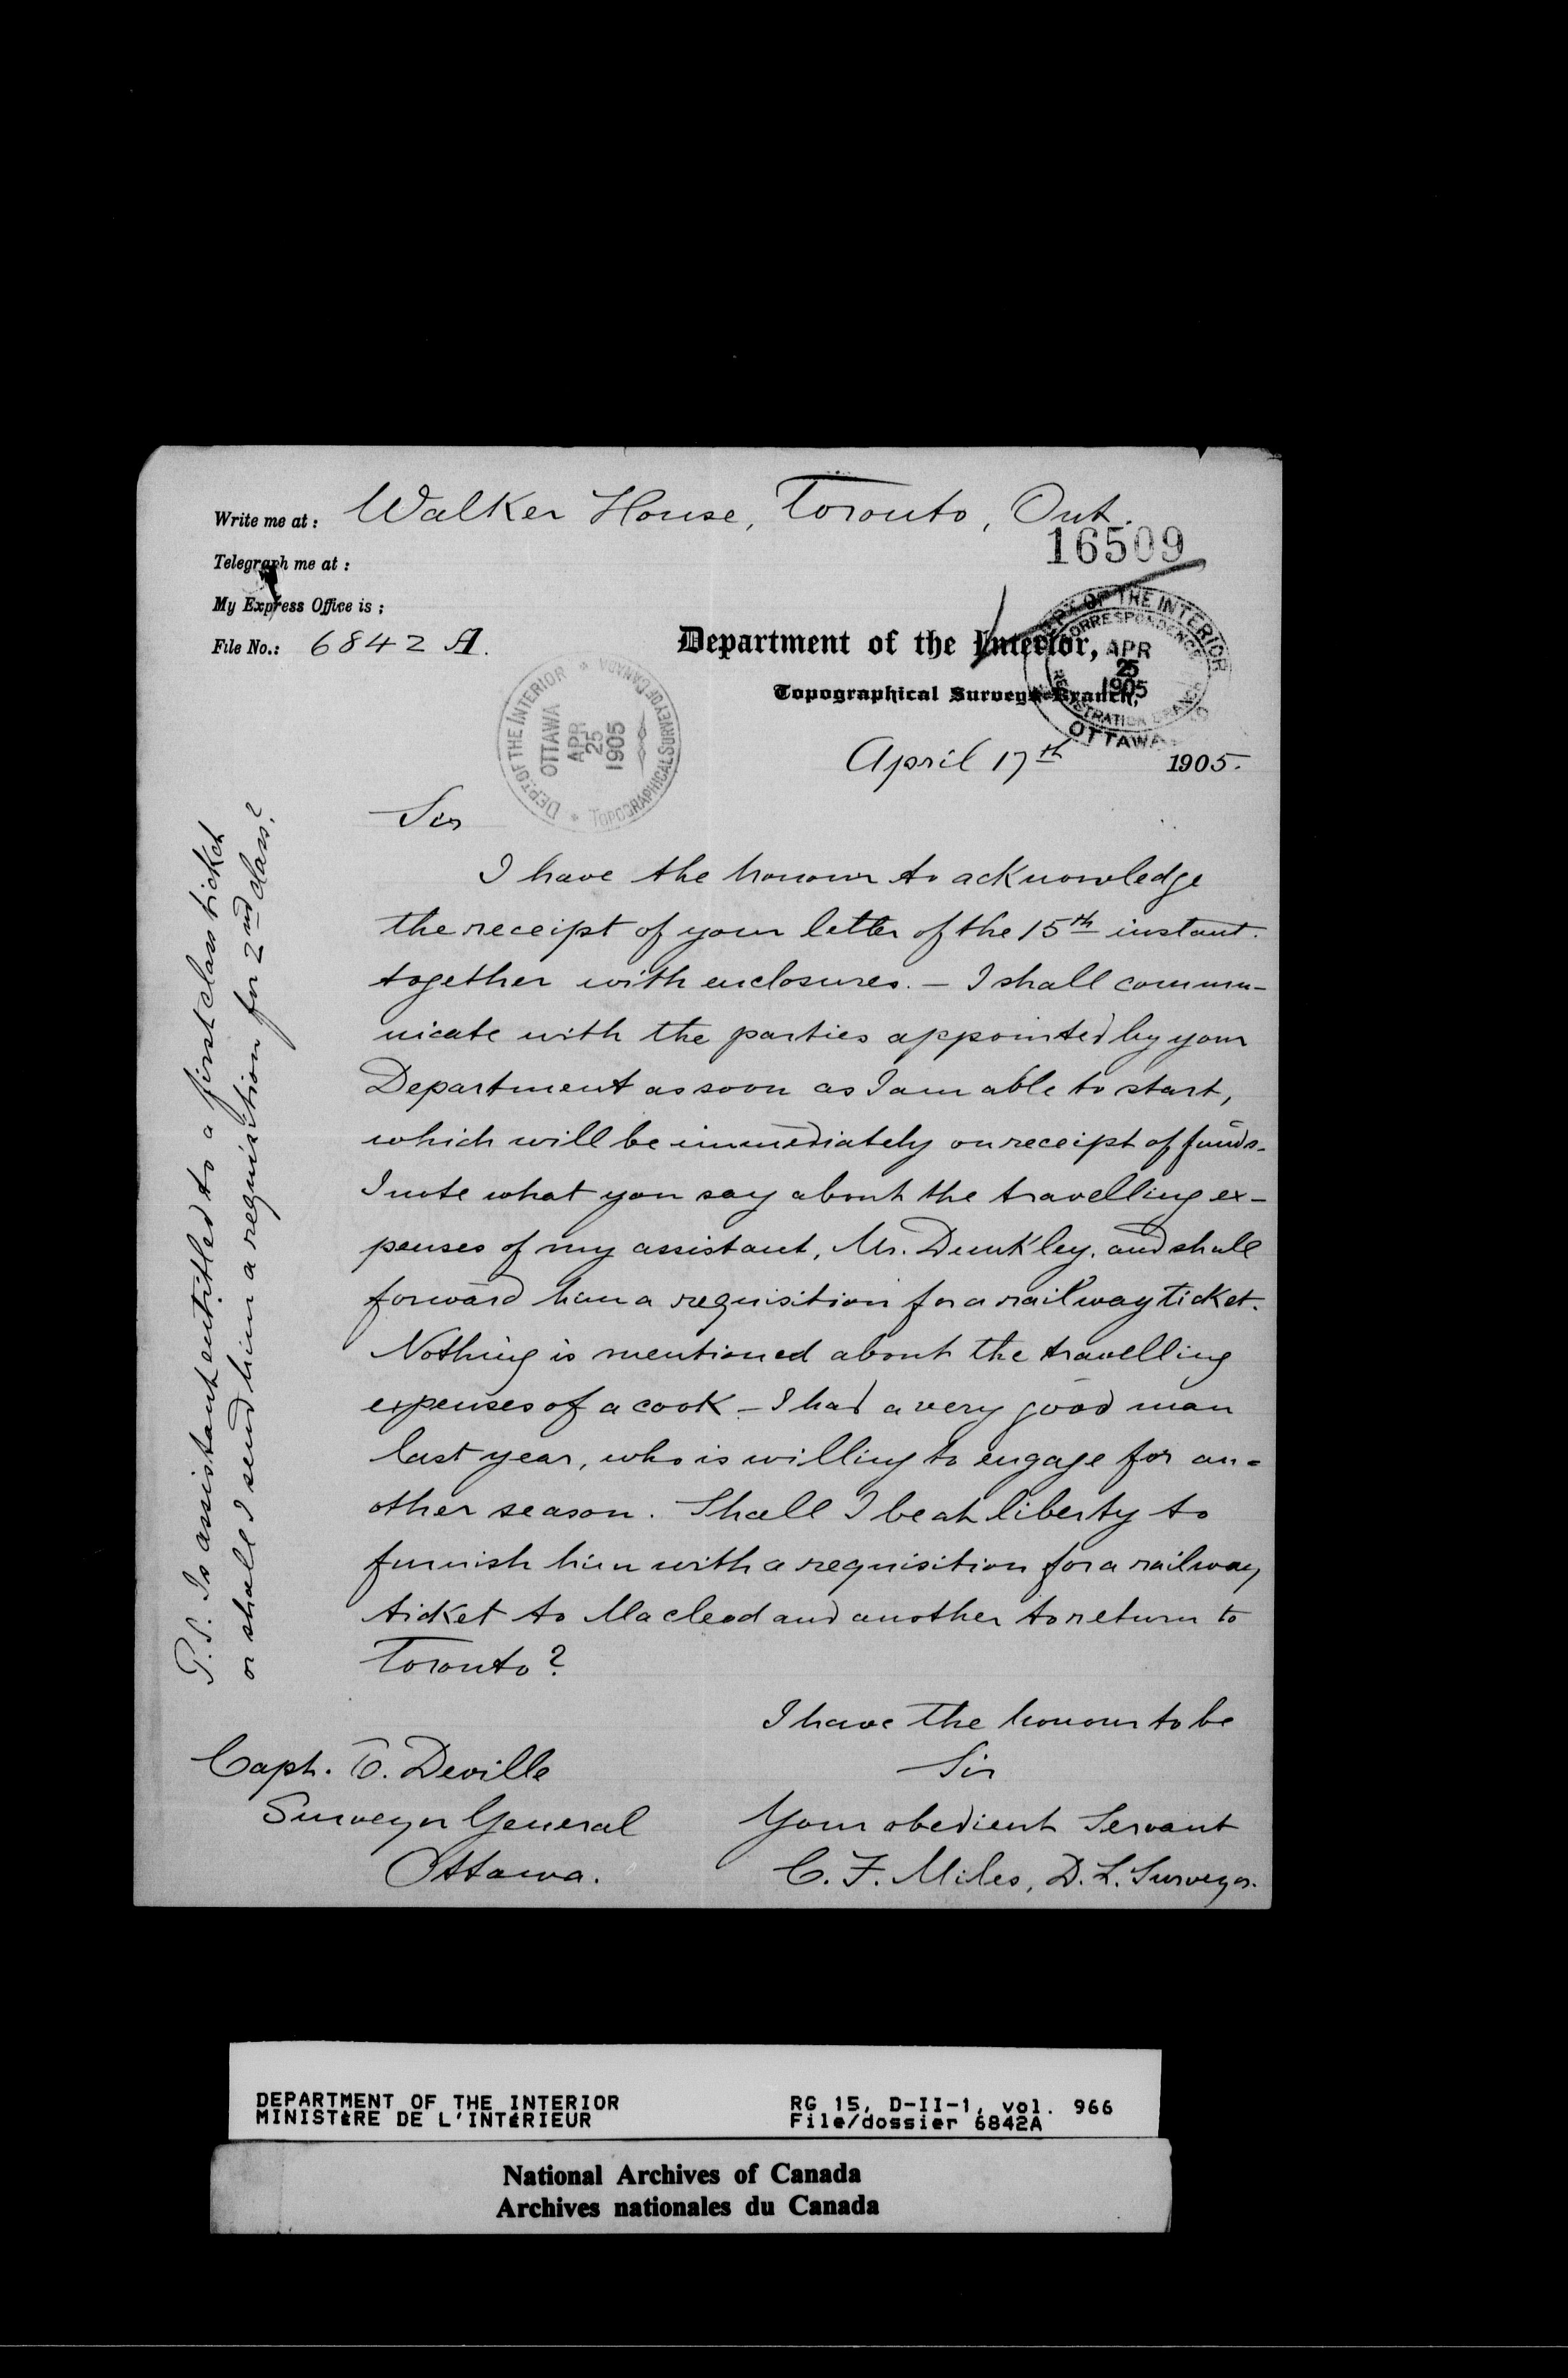 Write me at: Walker House, Toronto, Ont.
16509
Telegraph me at:
My Express Office is:
File No.: 6842 A.
Department of the Interior,
Topographical Surveys Branch,
DEPT. OF THE INTERIOR
CORRESPONDENCE
APR
25
1905
REGISTRATION BRANCH
OTTAWA
DEPT. OF THE INTERIOR
OTTAWA
APR
25
1905
TOPOGRAPHICAL SURVEY OF CANADA
April 17th 1905.
Sir
I have the honour to acknowledge
the receipt of your letter of the 15th instant.
together with enclosures. – I shall commu-
nicate with the parties appointed by your
Department as soon as I am able to start,
which will be immediately on receipt of funds.
I note what you say about the travelling ex-
penses of my assistant, Mr. Dunkley, and shall
forward him a requisition for a railway ticket.
Nothing is mentioned about the travelling
expenses of a cook – I had a very good man
last year, who is willing to engage for an-
other season. Shall I be at liberty to
furnish him with a requisition for a railway
ticket to Macleod and another to return to
Toronto?
I have the honour to be
Sir
Your obedient Servant
C. F. Miles, D. L. Surveyor.
Capt. E. Deville
Surveyor General
Ottawa.
P.S. Is assistant entitled to a first class ticket
or shall I send him a requisition for 2nd class?
DEPARTMENT OF THE INTERIOR
MINISTÈRE DE L'INTÉRIEUR
RG 15, D-II-1, vol. 966
File/dossier 6842A
National Archives of Canada
Archives nationales du Canada